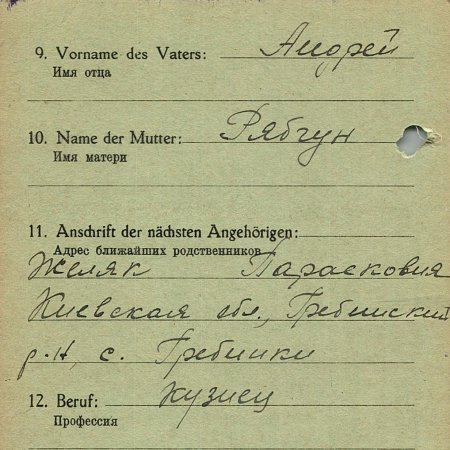 9. Vorname des Vaters: Андрей
Имя отца
10. Name der Mutter: Рябчун
Имя матери
11. Anschrift der nächsten Angehörigen:
Адрес ближайших родственников
Желяк Парасковия
Киевская обл., Гребинский
р-н, с. Гребинки
12. Beruf: кузнец
Профессия